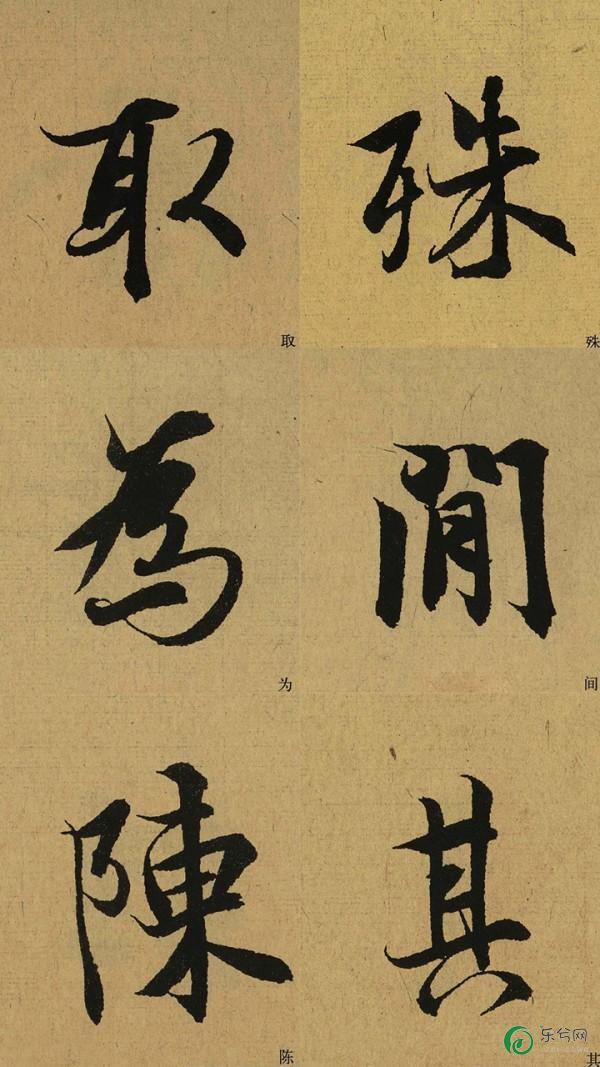 取 殊
取 殊
為 閒
为 间
陳 其
陈 其
乐兮网